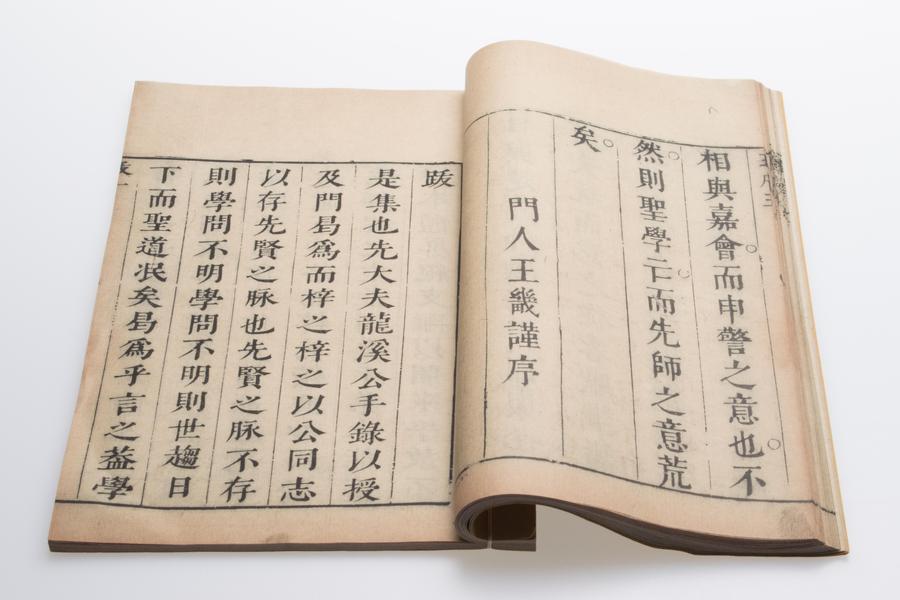 相與嘉會。而申警之意也。不
然。則聖學亡。而先師之意荒
矣。
門人王畿謹序
跋
是集也先大夫龍溪公手錄以授
及門曷爲而梓之梓之以公同志
以存先賢之脈也先賢之脈不存
則學問不明學問不明則世趨日
下而聖道泯矣曷爲乎言之葢學